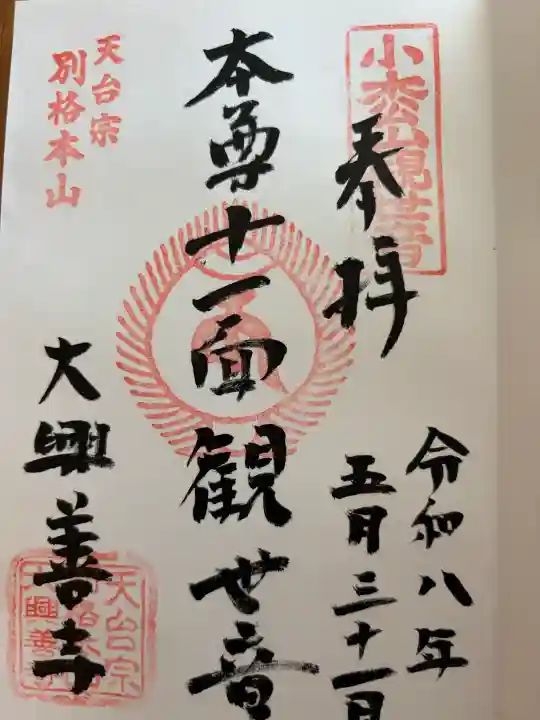 小松山観世音
奉拝
令和八年
五月三十一日
本尊十一面観世音
天台宗
別格本山
大興善寺
天台宗
大興善寺